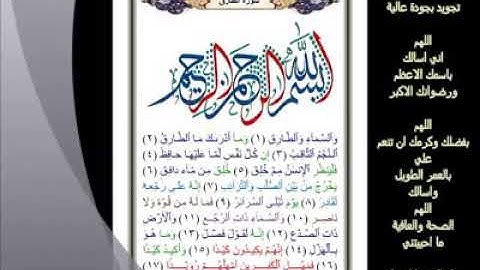 سورة الطارق
بسم الله الرحمن الرحيم
وَٱلسَّمَآءِ وَٱلطَّارِقِ (١) وَمَآ أَدْرَىٰكَ مَا ٱلطَّارِقُ (٢)
ٱلنَّجْمُ ٱلثَّاقِبُ (٣) إِن كُلُّ نَفْسٍ لَّمَّا عَلَيْهَا حَافِظٌ (٤)
فَلْيَنظُرِ ٱلْإِنسَٰنُ مِمَّ خُلِقَ (٥) خُلِقَ مِن مَّآءٍ دَافِقٍ (٦)
يَخْرُجُ مِنۢ بَيْنِ ٱلصُّلْبِ وَٱلتَّرَآئِبِ (٧) إِنَّهُۥ عَلَىٰ رَجْعِهِۦ
لَقَادِرٌ (٨) يَوْمَ تُبْلَى ٱلسَّرَآئِرُ (٩) فَمَا لَهُۥ مِن قُوَّةٍ وَلَا
نَاصِرٍ (١٠) وَٱلسَّمَآءِ ذَاتِ ٱلرَّجْعِ (١١) وَٱلْأَرْضِ
ذَاتِ ٱلصَّدْعِ (١٢) إِنَّهُۥ لَقَوْلٌ فَصْلٌ (١٣) وَمَا هُوَ
بِٱلْهَزْلِ (١٤) إِنَّهُمْ يَكِيدُونَ كَيْدًا (١٥) وَأَكِيدُ كَيْدًا
(١٦) فَمَهِّلِ ٱلْكَٰفِرِينَ أَمْهِلْهُمْ رُوَيْدًۢا (١٧)
تجويد بجودة عالية
اللهم
اني اسالك
باسمك الاعظم
ورضوانك الاكبر
اللهم
بفضلك وكرمك ان تنعم
علي
بالعمر الطويل
واسالك
اللهم
الصحة والعافية
ما احييتني